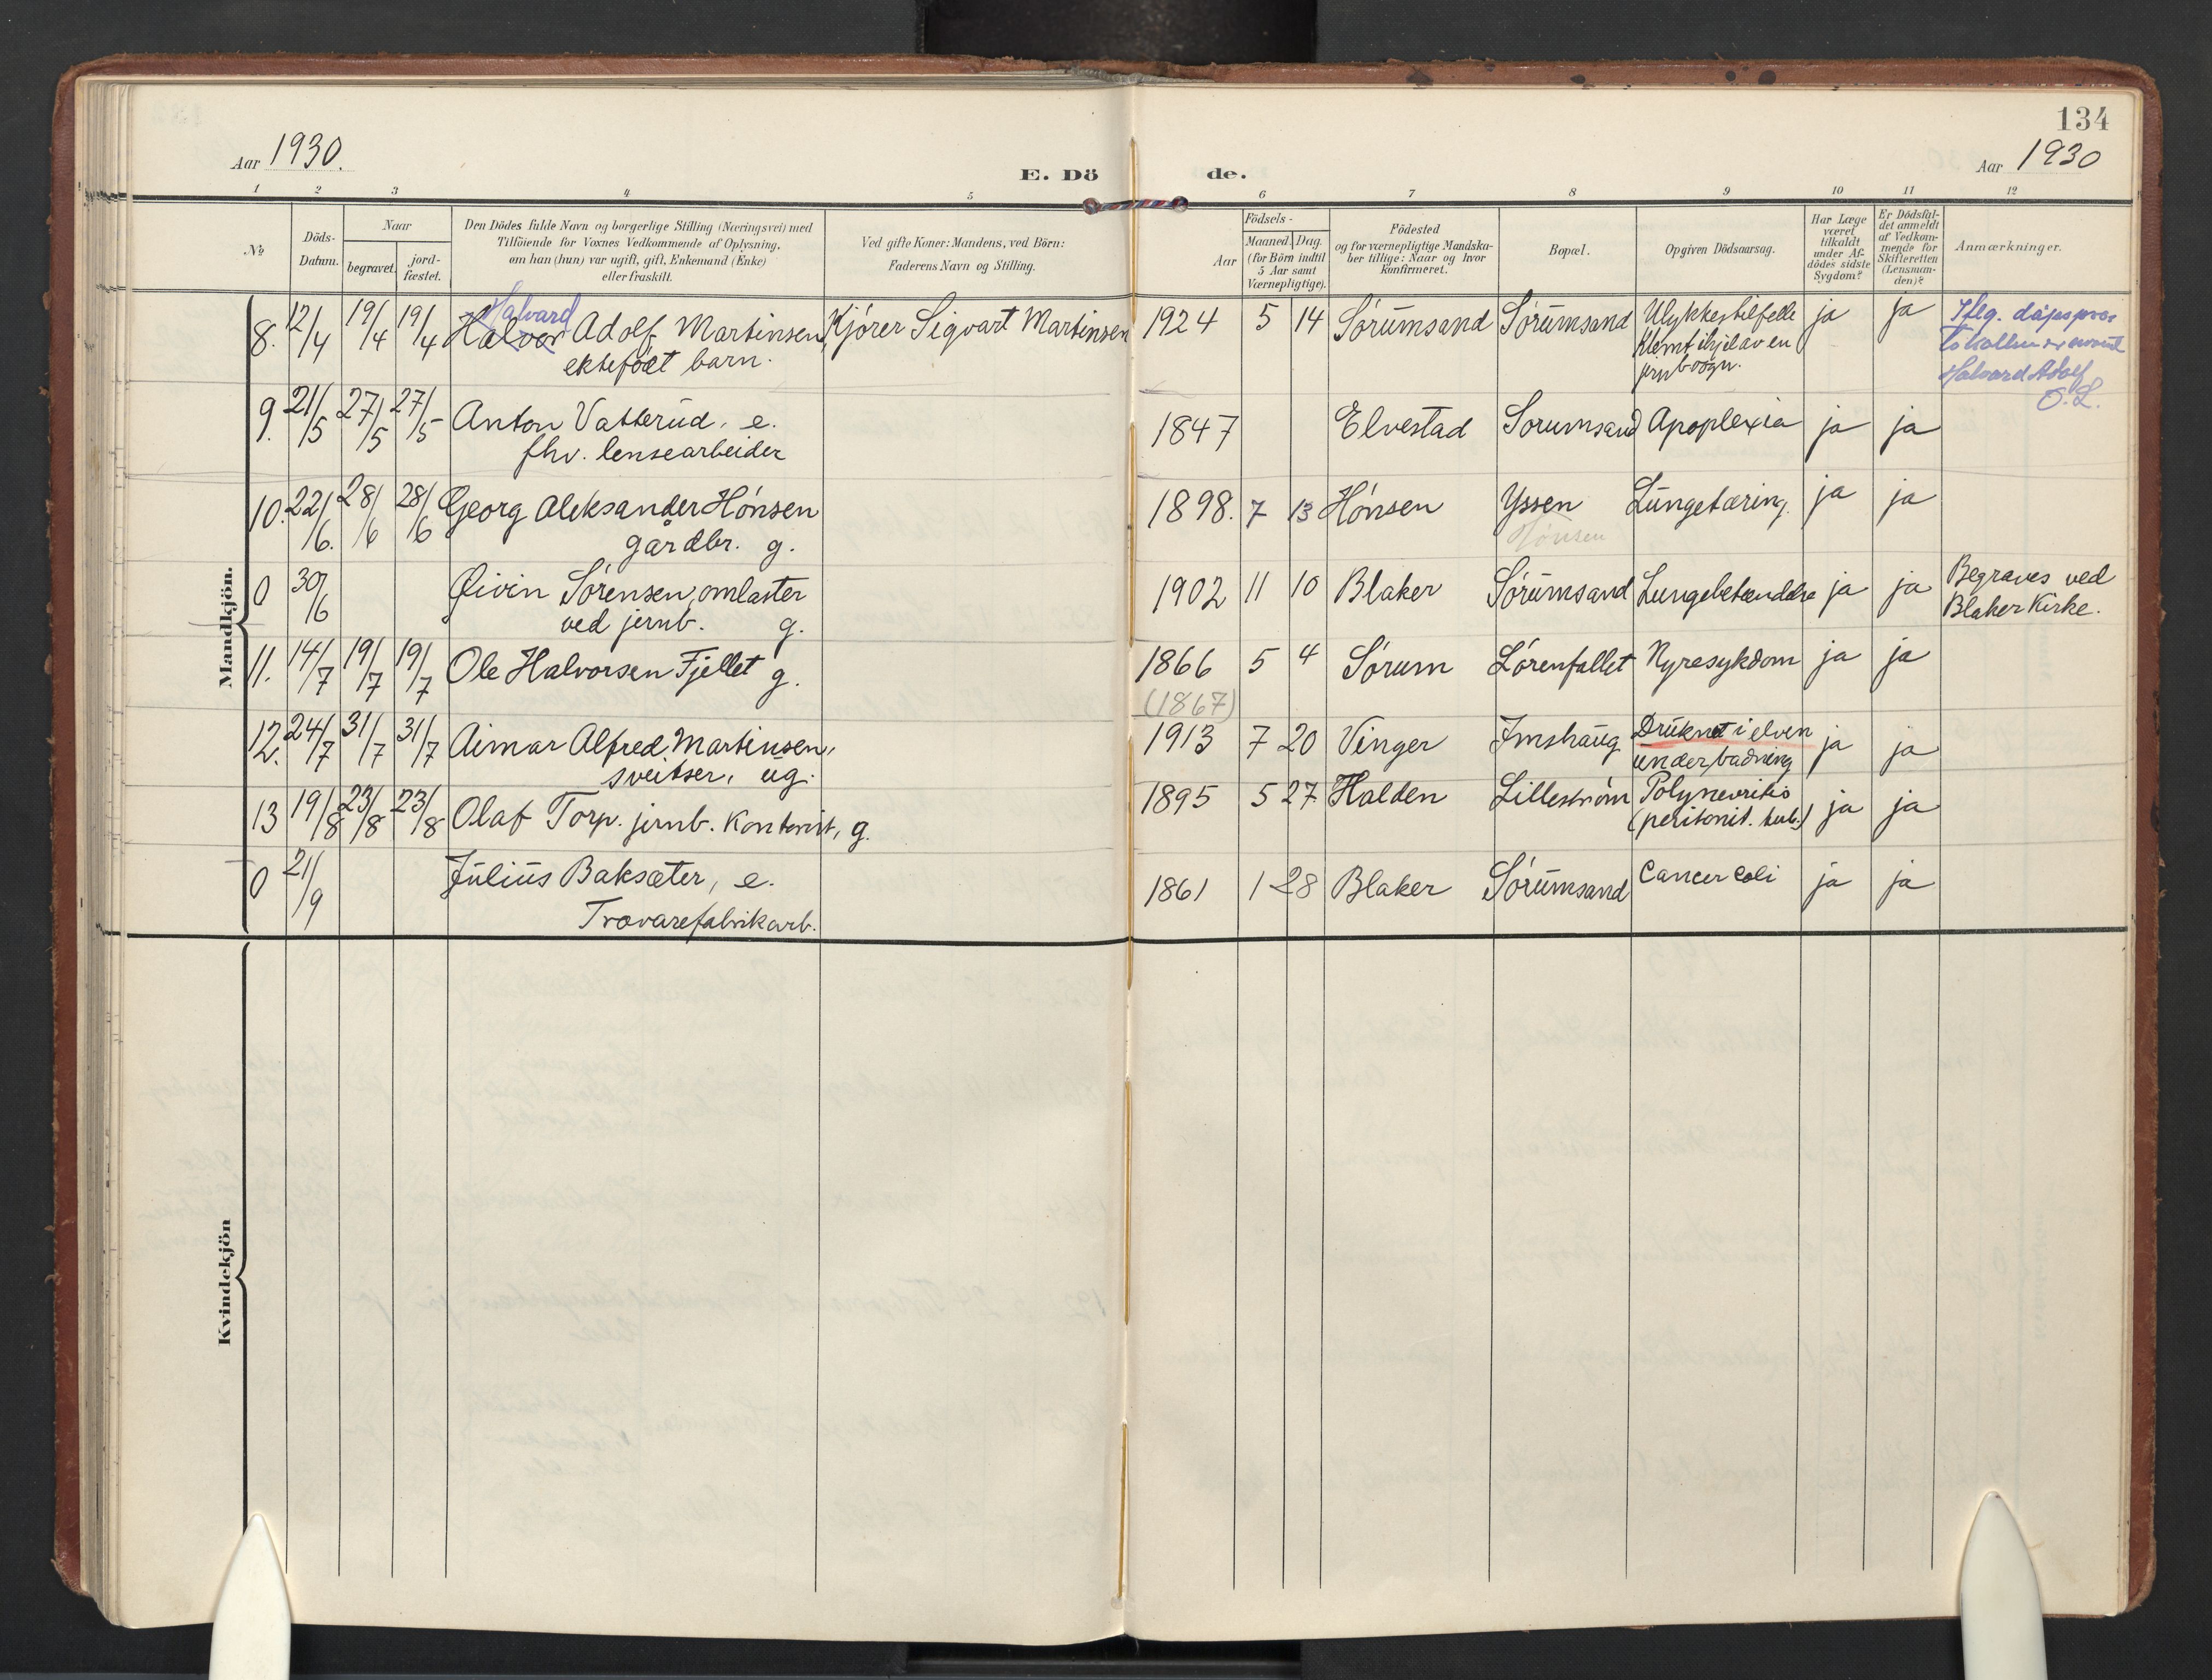 134
Aar 1930.
E. Dö
de.
Aar 1930
1 2 3 4 5 6 7 8 9 10 11 12
No
Döds-
Datum.
Naar
begravet.
jord-
fæstet.
Den Dödes fulde Navn og borgerlige Stilling (Næringsvei) med
Tilföiende for Voxnes Vedkommende af Oplysning,
om han (hun) var ugift, gift, Enkemand (Enke)
eller fraskilt.
Ved gifte Koner: Mandens, ved Börn:
Faderens Navn og Stilling.
Födsels-
Aar
Maaned. Dag.
(for Börn indtil
5 Aar samt
Værnepligtige).
Födested
og for værnepligtige Mandska-
ber tillige: Naar og hvor
Konfirmeret.
Bopæl.
Opgiven Dödsaarsag.
Har Læge
været
tilkaldt
under Af-
dödes sidste
Sygdom?
Er Dödsfal-
det anmeldt
af Vedkom-
mende for
Skifteretten
(Lensman-
den)?
Anmærkninger.
Mandkjön.
Halvard
8. 12/4 19/4 19/4 Halvor Adolf Martinsen, Kjører Sigvart Martinsen 1924 5 14 Sørumsand Sørumsand Ulykkestilfelle ja ja
ektefødt barn.
Klemt ihjel av en
jernbvogn.
Iflg. dåpspro-
tokollen
Halvard Adolf
O.L.
9. 21/5 27/5 27/5 Anton Vatterud, e. 1847 Elvestad Sorumsand Apoplexia ja ja
fhv. lensearbeider
10. 22/6. 28/6 28/6 Georg Aleksander Hønsen 1898. 7 13 Hønsen Yssen Lungetæring. ja ja
gårdbr. g.
Hønsen
0 30/6 Øivin Sørensen, omlaster 1902 11 10 Blaker Sørumsand Lungebetændelse ja ja Begraves ved
ved jernb. g.
Blaker Kirke.
11. 14/7 19/7 19/7 Ole Halvorsen Fjellet g. 1866 5 4 Sørum Lørenfallet Nyresykdom ja ja
(1867)
12. 24/7 31/7 31/7 Aimar Alfred Martinsen, 1913 7 20 Vinger Imshaug Druknet i elven ja ja
sveitser, ug.
under badning
13 19/8 23/8 23/8 Olaf Torp. jernb. kontorist, g. 1895 5 27 Halden Lillestrøm Polynevritis ja ja
(peritonit. tub.)
0 21/9 Julius Baksæter, e. 1861 1 28 Blaker Sørumsand Cancer Coli ja ja
Trævarefabrikarb.
Kvindekjön